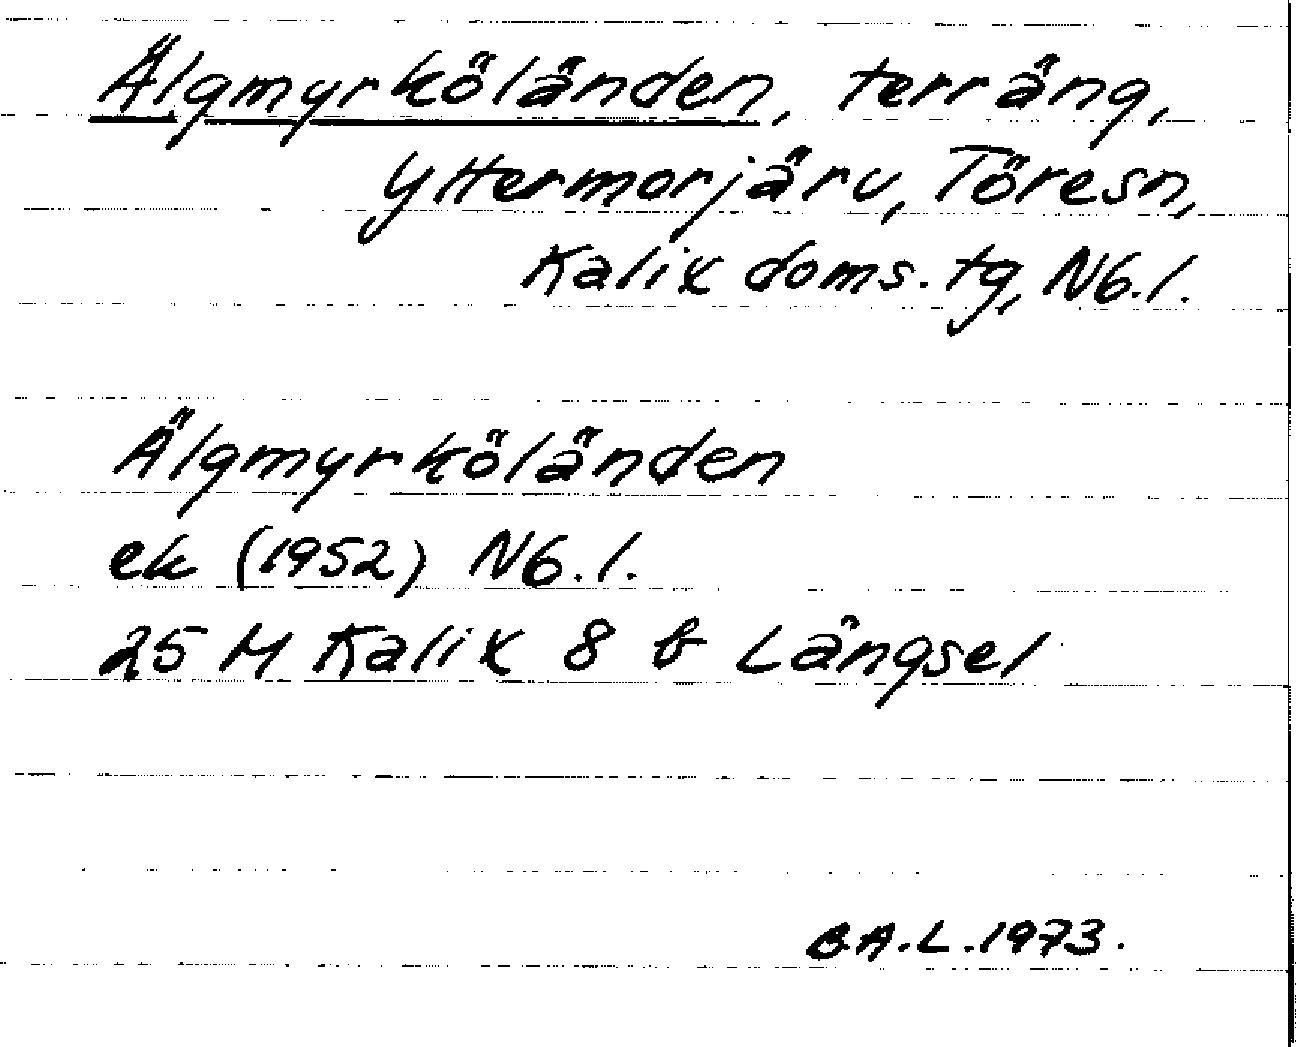 Älgmyrköländen, terräng,
Yttermorjärv, Töresn,
Kalix doms. tg, Nb.l.
Älgmyrköländen
ek (1952) Nb.l.
25 M Kalix 8 b Långsel
B.A.L. 1973.